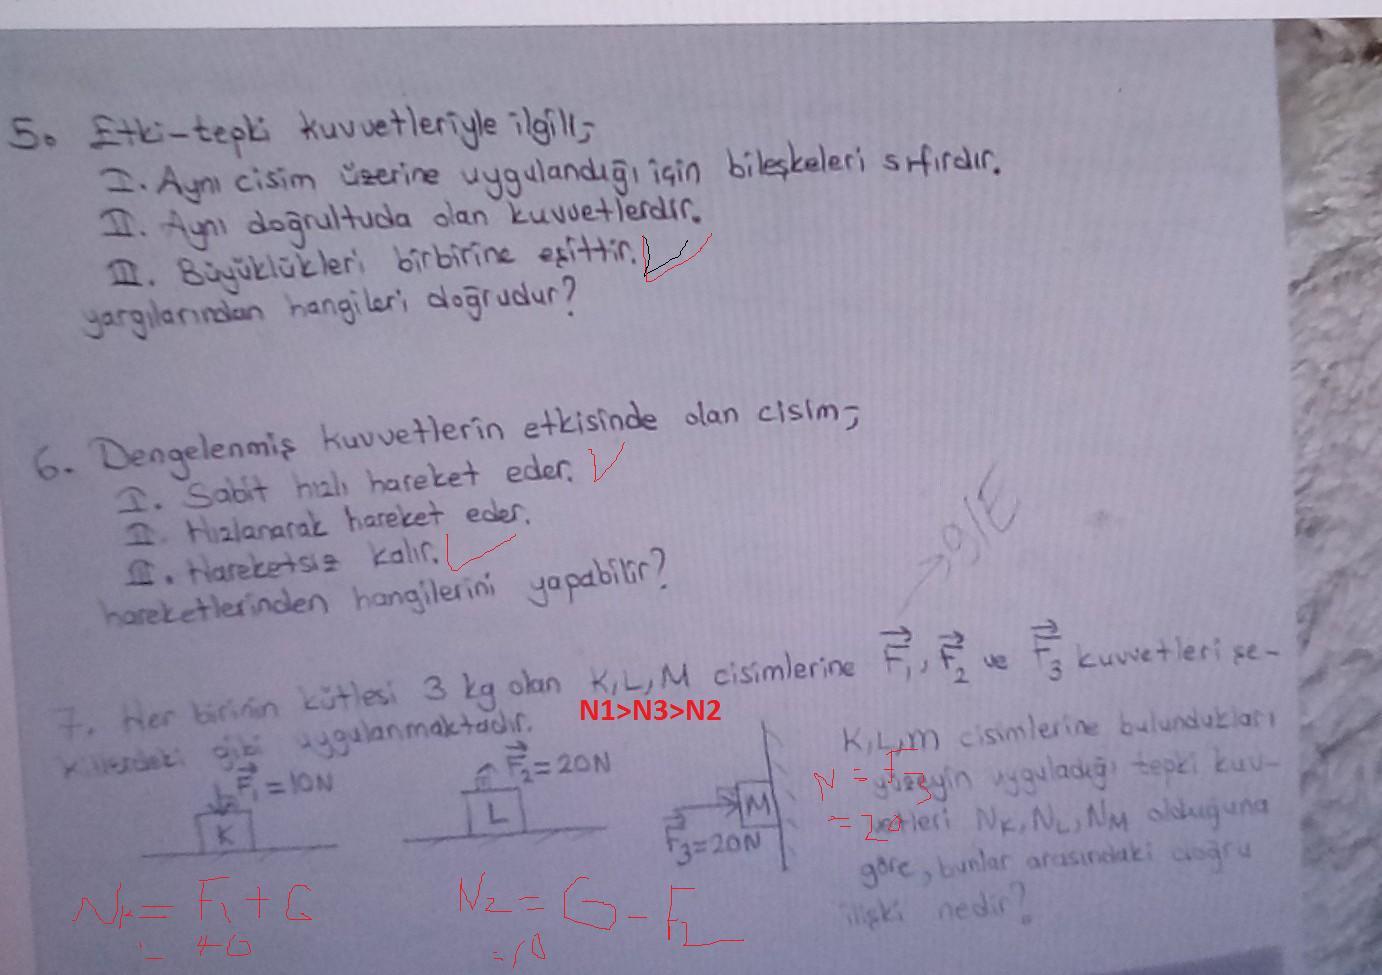 5. Etki-tepki kuvvetleriyle ilgili;
I. Aynı cisim üzerine uygulandığı için bileşkeleri sıfırdır.
II. Aynı doğrultuda olan kuvvetlerdir.
III. Büyüklükleri birbirine eşittir.
yargılarından hangileri doğrudur?
6. Dengelenmiş kuvvetlerin etkisinde olan cisim;
I. Sabit hızlı hareket eder.
II. Hızlanarak hareket eder.
III. Hareketsiz kalır.
hareketlerinden hangilerini yapabilir?
→g/E
7. Her birinin kütlesi 3 kg olan K, L, M cisimlerine F₁, F₂ ve F₃ kuvvetleri şe-
killerdeki gibi uygulanmaktadır.
N1>N3>N2
F₁=10N
K
F₂=20N
L
F₃=20N
M
K, L, M cisimlerine bulundukları
yüzeyin uyguladığı tepki kuv-
vetleri Nₖ, N_L, N_M olduğuna
göre, bunlar arasındaki doğru
ilişki nedir?
N = F3
= 20
Nk = F1 + G
= 40
N2 = G - F2
= 10